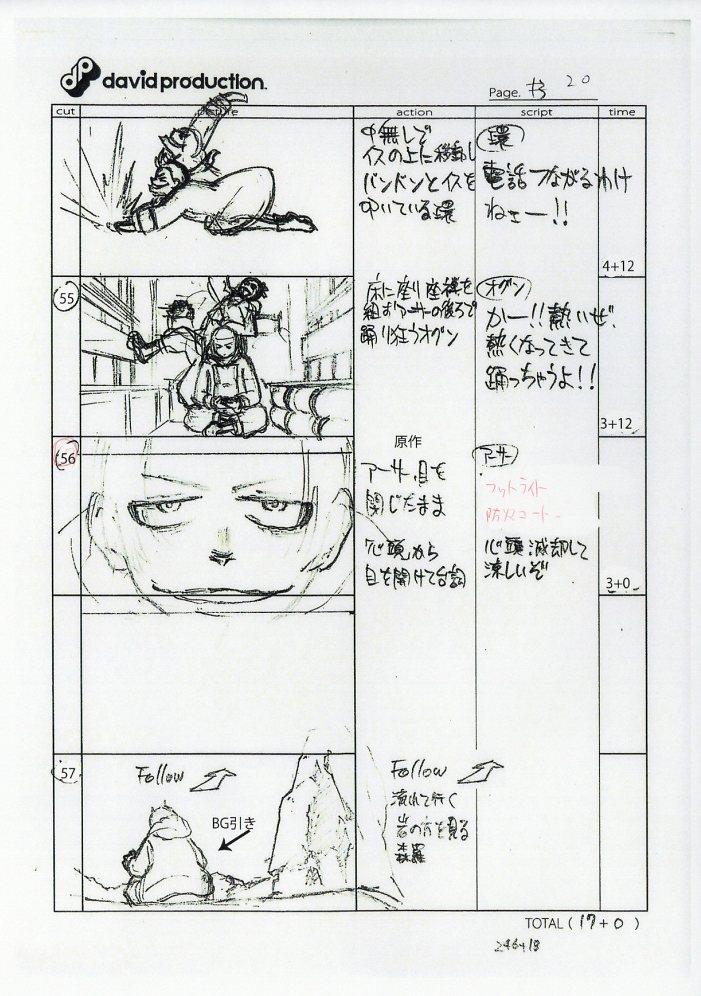 david production.
Page.
20
cut
picture
action
script
time
中無しで
イスの上に移動し
バンバンとイスを
叩いている環
環
電話つながるわけ
ねェー!!
4+12
55
床に座り座禅を
組むアーサーの後ろで
踊り狂うオグン
オグン
かー!!熱いぜ
熱くなってきて
踊っちゃうよ!!
3+12
56
原作
アーサー、目を
閉じたまま
心頭から
目を開けて台詞
アーサー
フットライト
防火コート
心頭滅却して
涼しいぞ
3+0
57
Follow
BG引き
Follow
流れて行く
岩の方を見る
森羅
TOTAL ( 17 + 0 )
246+18